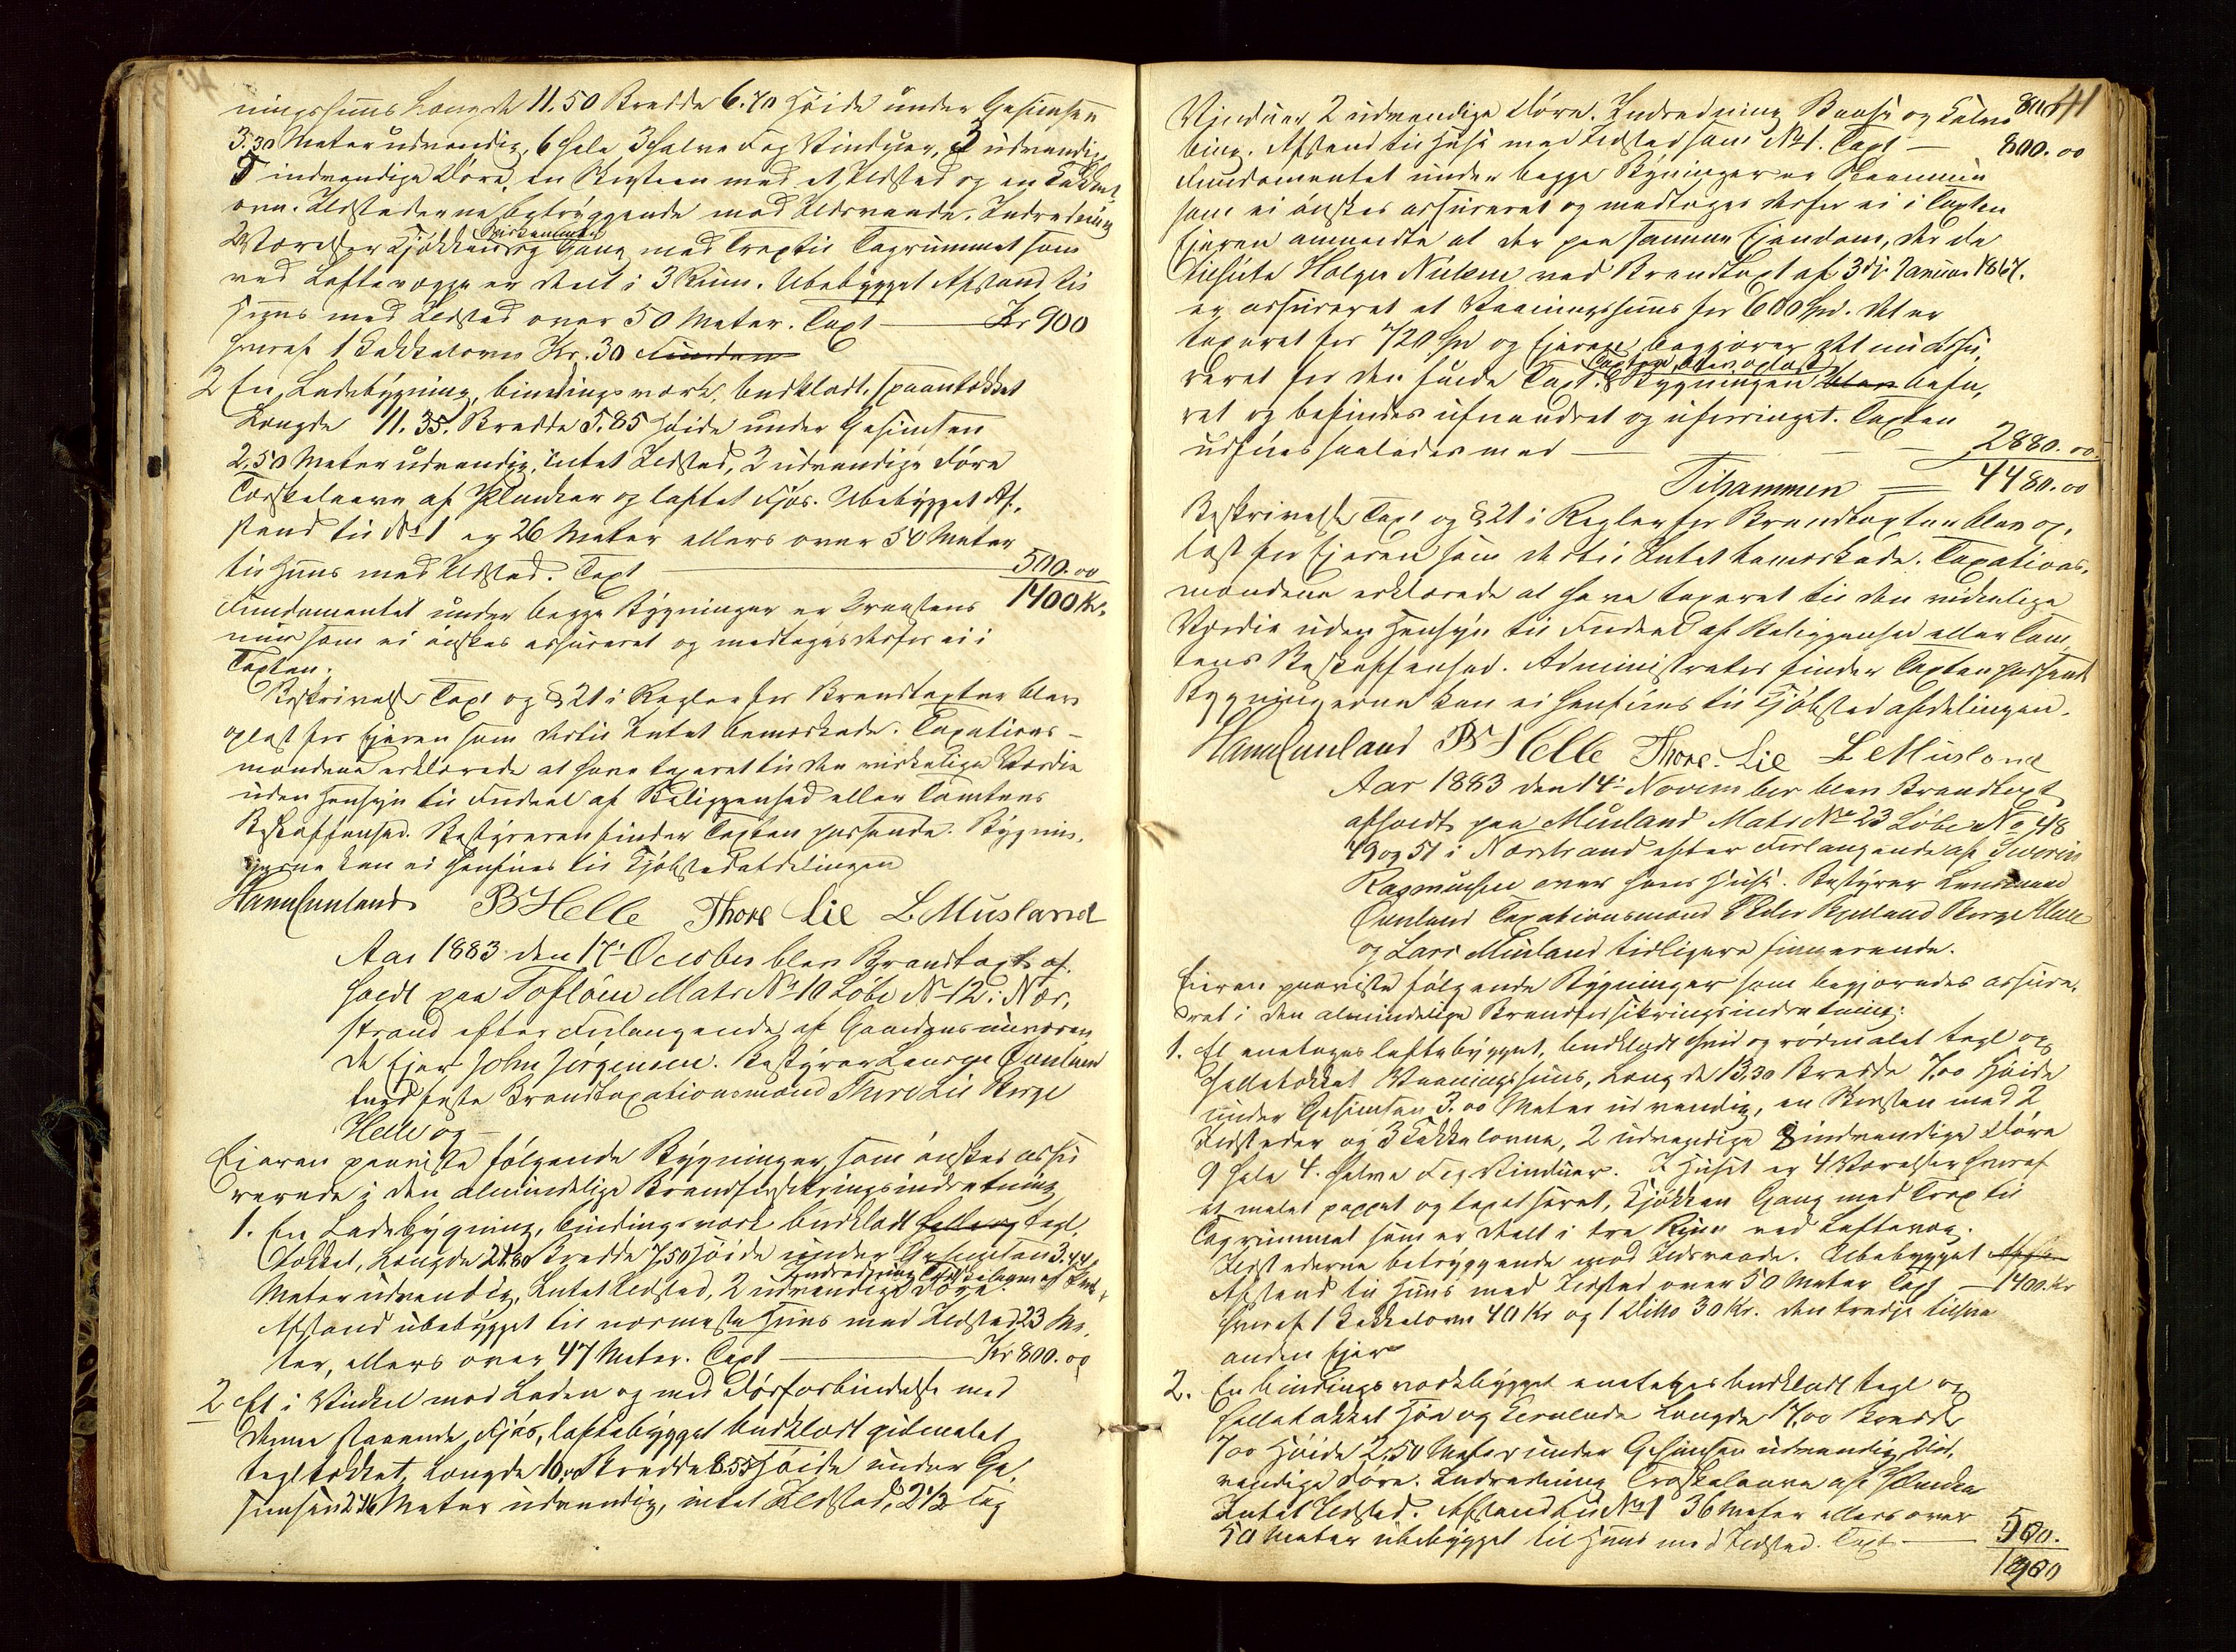 ningshuus Længde 11.50 Bredde 6.70 Høide under Gesimsen
3.30 Meter udvendig, 6 hele 3 halve Fag Vinduer, 3 udvendige
5 indvendige Døre, en Skorsteen med et Ildsted og en Kakkel-
ovn. Ildstederne betryggende mod Ildsvaade. Indredning
2 Værelser Kjøkken og Gang med Trap til Tagrummet som
ved Loftevægge er deelt i 3 Rum. Ubebygget Afstand til
Huus med Ildsted over 50 Meter. Taxt — Kr 900
hvoraf 1 Kakkelovn Kr. 30
2 En Ladebygning, bindingsværk, budklædt, spaantækket
Længde 11.35. Bredde 5.85 Høide under Gesimsen
2,50 Meter udvendig, intet Ildsted, 2 udvendige Døre
Tærskelaave af Planker og loftet Fjøs. Ubebygget Af-
stand til No 1 er 26 Meter ellers over 50 Meter
til Huus med Ildsted. Taxt — 500.00
1400 Kr.
Fundamentet under begge Bygninger er Graasteens
mur som ei ønskes assureret og medtages derfor ei i
Taxten.
Beskrivelse Taxt og § 21 i Regler for Brandtaxter blev
oplæst for Ejeren som dertil Intet bemærkede. Taxations-
mændene erklærede at have taxeret til den virkelige Værdie
uden Hensyn til Fordeel af Beliggenhed eller Tomtens
Beskaffenhed. Bestyreren finder Taxten passende. Bygnin-
gerne kan ei henføres til Kjøbstedafdelingen
B Helle Thore Lie L. Musland
Aar 1883 den 17' October blev Brandtaxt af-
holdt paa Tofløen Matr No 10 Løbe No 12 i Nær-
strand efter Forlangende af Gaardens nuværen-
de Ejer John Jørgensen. Bestyrer Lensm
faste Brandtaxationsmænd Thore Lie Børge
Helle og —
Ejeren paaviste følgende Bygninger, som ønskes assu-
rerede i den almindelige Brandforsikringsindretning
1. En Ladebygning, bindingsværk budklædt helle og tegl-
tækket, Længde 21.80 Bredde 7,50 Høide under Gesimsen 3.44
Meter udvendig, Intet Ildsted, 2 udvendige Døre.
Afstand ubebygget til nærmeste Huus med Ildsted 23 Me-
ter, ellers over 47 Meter. Taxt — Kr 800.00
2 Et i Vinkel mod Laden og med Dørforbindelse med
denne staaende Fjøs, loftebygget budklædt gulmalet
tegltækket, Længde 10,00 Bredde 8.55 Høide under Ge-
simsen 2.46 Meter udvendig, intet Ildsted, 2 1/2 Fag
41
Vinduer 2 udvendige Døre. Indredning Baase og Kalve- 800
bing. Afstand til Huse med Ildsted som No 1. Taxt — 800.00
Fundamentet under begge Bygninger er Steenmur
som ei ønskes assureret og medtages derfor ei i Taxten
Ejeren anmeldte at der paa samme Ejendom, der da
tilhørte Holger Nielsen ved Brandtaxt af 3die Januar 1867.
er assureret et Vaaningshuus for 600 Spd. Det er
taxeret for 720 Spd og Ejeren begjærer det nu assu-
reret for den fulde Taxt. Taxten blev oplæst Bygningen blev besee-
et og befindes uforandret og uforringet. Taxten
udføres saaledes med — 2880.00
Tilsammen — 4480.00
Beskrivelse Taxt og § 21 i Regler for Brandtaxter blev op-
læst for Ejeren som dertil Intet bemærkede. Taxations-
mændene erklærede at have taxeret til den virkelige
Værdie uden Hensyn til Fordeel af Beliggenhed eller Tom-
tens Beskaffenhed. Administrator finder Taxten passende
Bygningerne kan ei henføres til Kjøbstedafdelingen.
B Helle Thore Lie L Musland
Aar 1883 den 14' November blev Brandtaxt
afholdt paa Musland Matr No 23 Løbe No 48
49 og 51 i Nærstrand efter Forlangende af
Rasmussen over hans Huse. Bestyrer Lensmand
Taxationsmænd Peder Børge Helle
og Lars Musland tidligere fungerende.
Eieren paaviste følgende Bygninger som begjæredes assure-
ret i den almindelige Brandforsikringsindretning:
1. Et eenetages loftebygget, budklædt hvid og rødmalet tegl og
helletækket Vaaningshuus, Længde 13,30 Bredde 7,00 Høide
under Gesimsen 3.00 Meter udvendig, en Skorsten med 2
Ildsteder og 3 Kakkelovne, 2 udvendige 8 indvendige Døre
9 hele 4 halve Fag Vinduer. I Huset er 4 Værelser hvoraf
et malet pappet og tapetseret, Kjøkken Gang med Trap til
Tagrummet som er deelt i tre Rum ved Loftevæg.
Ildstederne betryggende mod Ildsvaade. Ubebygget
Afstand til Huus med Ildsted over 50 Meter Taxt — 1400.Kr
hvoraf 1 Kakkelovn 40 Kr og 1 Ditto 30 Kr. den tredje tilhører
anden Ejer
2. En bindingsværksbygget eenetages budklædt tegl og
helletækket Hø og Kornlade Længde 17,00 Bredde
7,00 Høide 2,50 Meter under Gesimsen udvendig, 2 ud-
vendige Døre. Indredning Træskelaave af Planker
Intet Ildsted. Afstand til No 1 36 Meter ellers over
50 Meter ubebygget til Huus med Ildsted. Taxt — 500.
1900